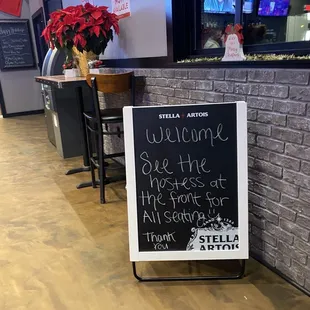 STELLA ARTOIS
Welcome
See the
hostess at
the front for
All seating
Thank
You
STELLA
ARTOIS